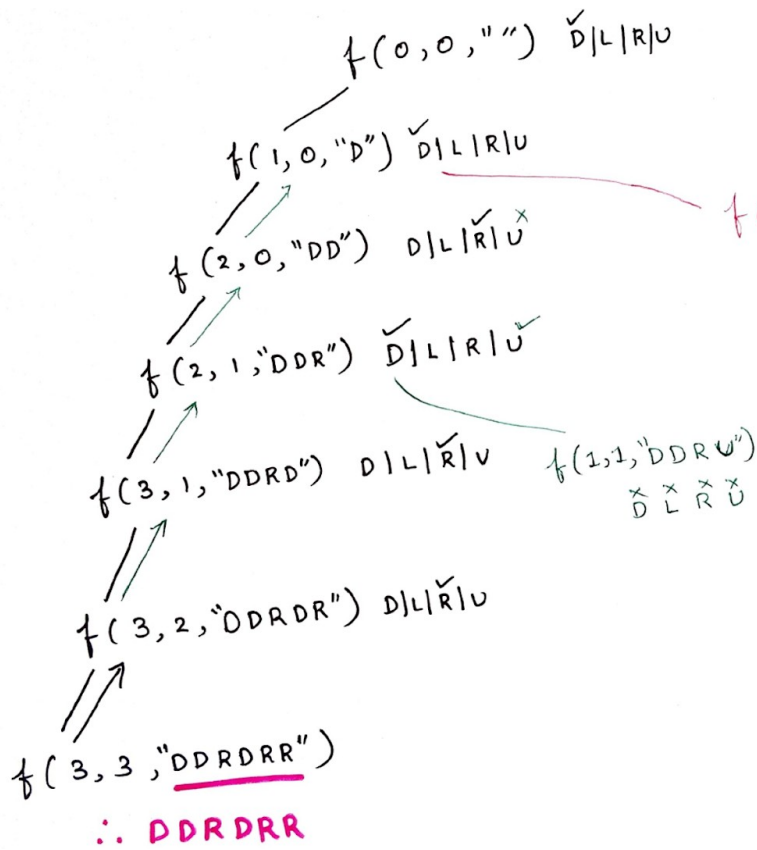 f(0,0,"") D|L|R|U
f(1,0,"D") D|L|R|U
f
f(2,0,"DD") D|L|R|U
f(2,1,"DDR") D|L|R|U
f(3,1,"DDRD") D|L|R|U
f(1,1,"DDRU")
D L R U
f(3,2,"DDRDR") D|L|R|U
f(3,3,"DDRDRR")
∴ DDRDRR